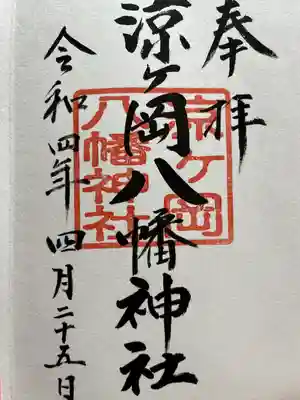 奉拝
涼ヶ岡八幡神社
涼ヶ岡
八幡神社
令和四年 四月二十五日